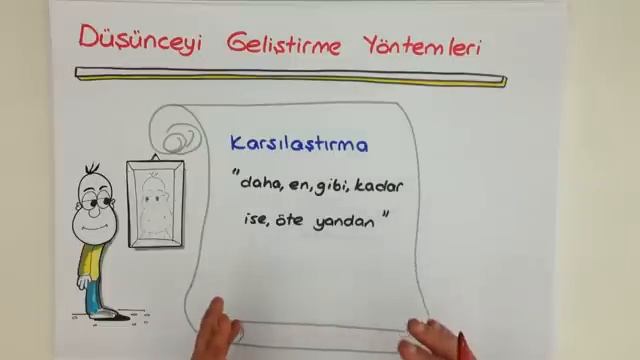 Düşünceyi Geliştirme Yöntemleri
Karsılaştırma
"daha, en, gibi, kadar
ise, öte yandan"